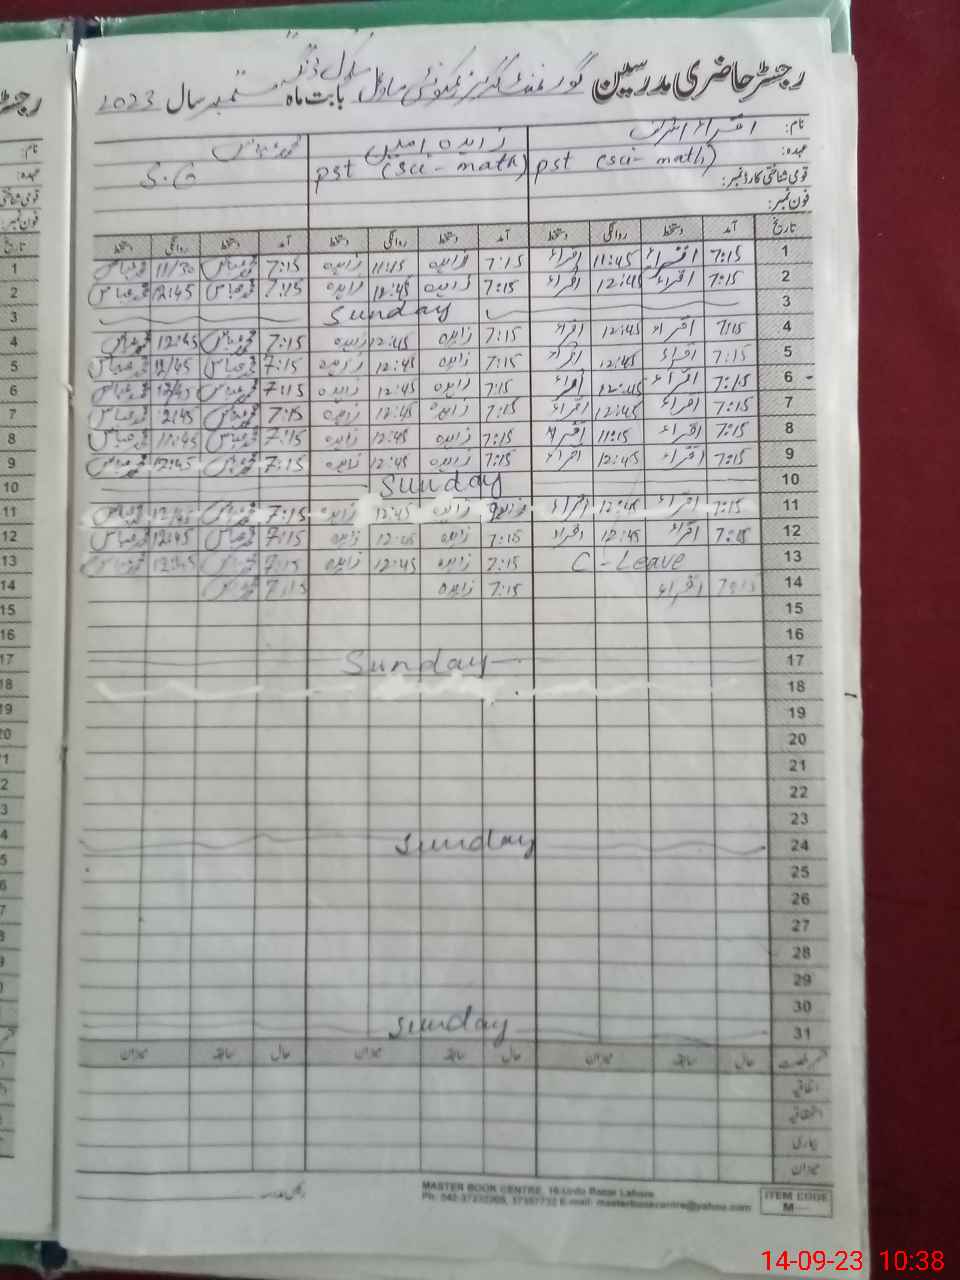 رجسٹر حاضری مدرسین گورنمنٹ گرلز کمیونٹی ماڈل سکول بابت ماہ ستمبر سال 2023
نام: اقراء زاہدہ
عہدہ: pst (sci-math) pst (sci-math) S.G
قومی شناختی کارڈ نمبر:
فون نمبر:
تاریخ آمد دستخط روانگی دستخط آمد دستخط روانگی دستخط آمد دستخط روانگی دستخط
1 7:15 اقراء 11:45 اقراء 7:15 زاہدہ 11:15 زاہدہ 7:15 محمد عباس 11/30 محمد عباس
2 7:15 اقراء 12:45 اقراء 7:15 زاہدہ 12:45 زاہدہ 7:15 محمد عباس 12:45 محمد عباس
3 Sunday
4 7:15 اقراء 12:45 اقراء 7:15 زاہدہ 12:45 زاہدہ 7:15 محمد عباس 12:45 محمد عباس
5 7:15 اقراء 12:45 اقراء 7:15 زاہدہ 12:45 زاہدہ 7:15 محمد عباس 12/45 محمد عباس
6 7:15 اقراء 12:45 اقراء 7:15 زاہدہ 12:45 زاہدہ 7:15 محمد عباس 12/45 محمد عباس
7 7:15 اقراء 12:45 اقراء 7:15 زاہدہ 12:45 زاہدہ 7:15 محمد عباس محمد عباس
8 7:15 اقراء 11:15 اقراء 7:15 زاہدہ 12:45 زاہدہ 7:15 محمد عباس 11:45 محمد عباس
9 7:15 اقراء 12:45 اقراء 7:15 زاہدہ 12:45 زاہدہ 7:15 محمد عباس 12:45 محمد عباس
10 Sunday
11 7:15 اقراء 12:45 اقراء زاہدہ 12:45 زاہدہ 7:15 محمد عباس 12/45 محمد عباس
12 7:15 اقراء 12:45 اقراء 7:15 زاہدہ 12:45 زاہدہ 7:15 محمد عباس 12:45 محمد عباس
13 C-Leave 7:15 زاہدہ 12:45 زاہدہ 7:15 محمد عباس 12:45 محمد عباس
14 اقراء 7:15 زاہدہ 7:15 محمد عباس
15
16
17 Sunday
18
19
20
21
22
23
24 Sunday
25
26
27
28
29
30
31 Sunday
حال سابقہ میزان حال سابقہ میزان حال سابقہ میزان
اتفاقیہ
استحقاقیہ
بیماری
میزان
MASTER BOOK CENTRE, 16-Urdu Bazar Lahore
E-mail: masterbookcentre@yahoo.com
ITEM CODE
M
14-09-23 10:38